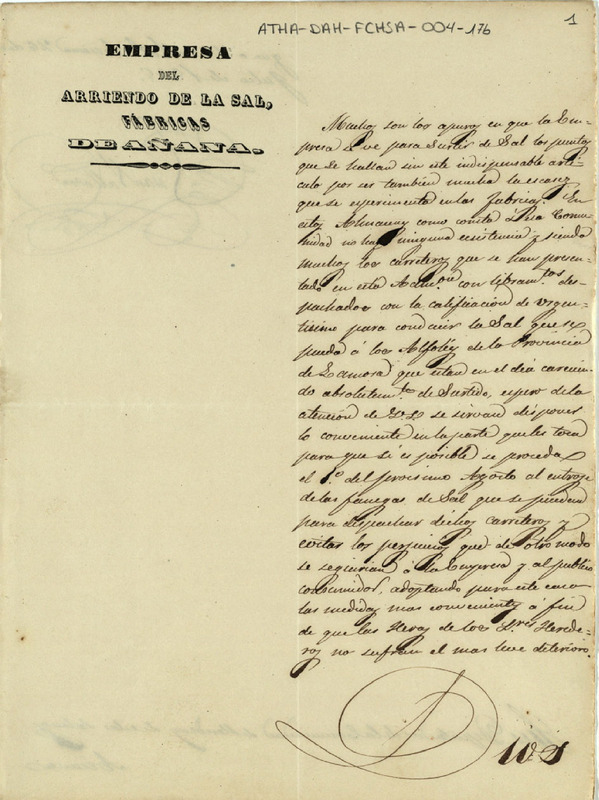 ATHA-DAH-FCHSA-004-176
1
EMPRESA
DEL
ARRIENDO DE LA SAL,
FÁBRICAS
DE AÑANA.
Muchos son los apuros en que la Em-
presa se ve para surtir de Sal los puntos
que se hallan sin este indispensable arti-
culo por ser tambien mucha la escasez
que se esperimenta en las fabricas. En
estos Almacenes como consta á esa Comu-
nidad no hay ninguna ecsistencia y siendo
muchos los carreteros que se han presen-
tado en esta Admon. con libramtos des-
pachados con la calificacion de urgen-
tisimo para conducir la Sal que se
pueda á los Alfolíes de la Provincia
de Zamora que estan en el dia carecien-
do absolutamte. de Surtido, espero de la
atencion de VS se sirvan disponer
lo conveniente en la parte que les toca
para que si es posible se proceda
el 1º. del procsimo Agosto al entroje
de las fanegas de Sal que se puedan
para despachar dichos carreteros y
evitar los perjuicios que de otro modo
se seguirian á la Empresa y al publico
consumidor, adoptando para este caso
las medidas mas convenientes a fin
de que las Heras de los Sres Herede-
ros no sufran el mas leve deterioro.
Dios